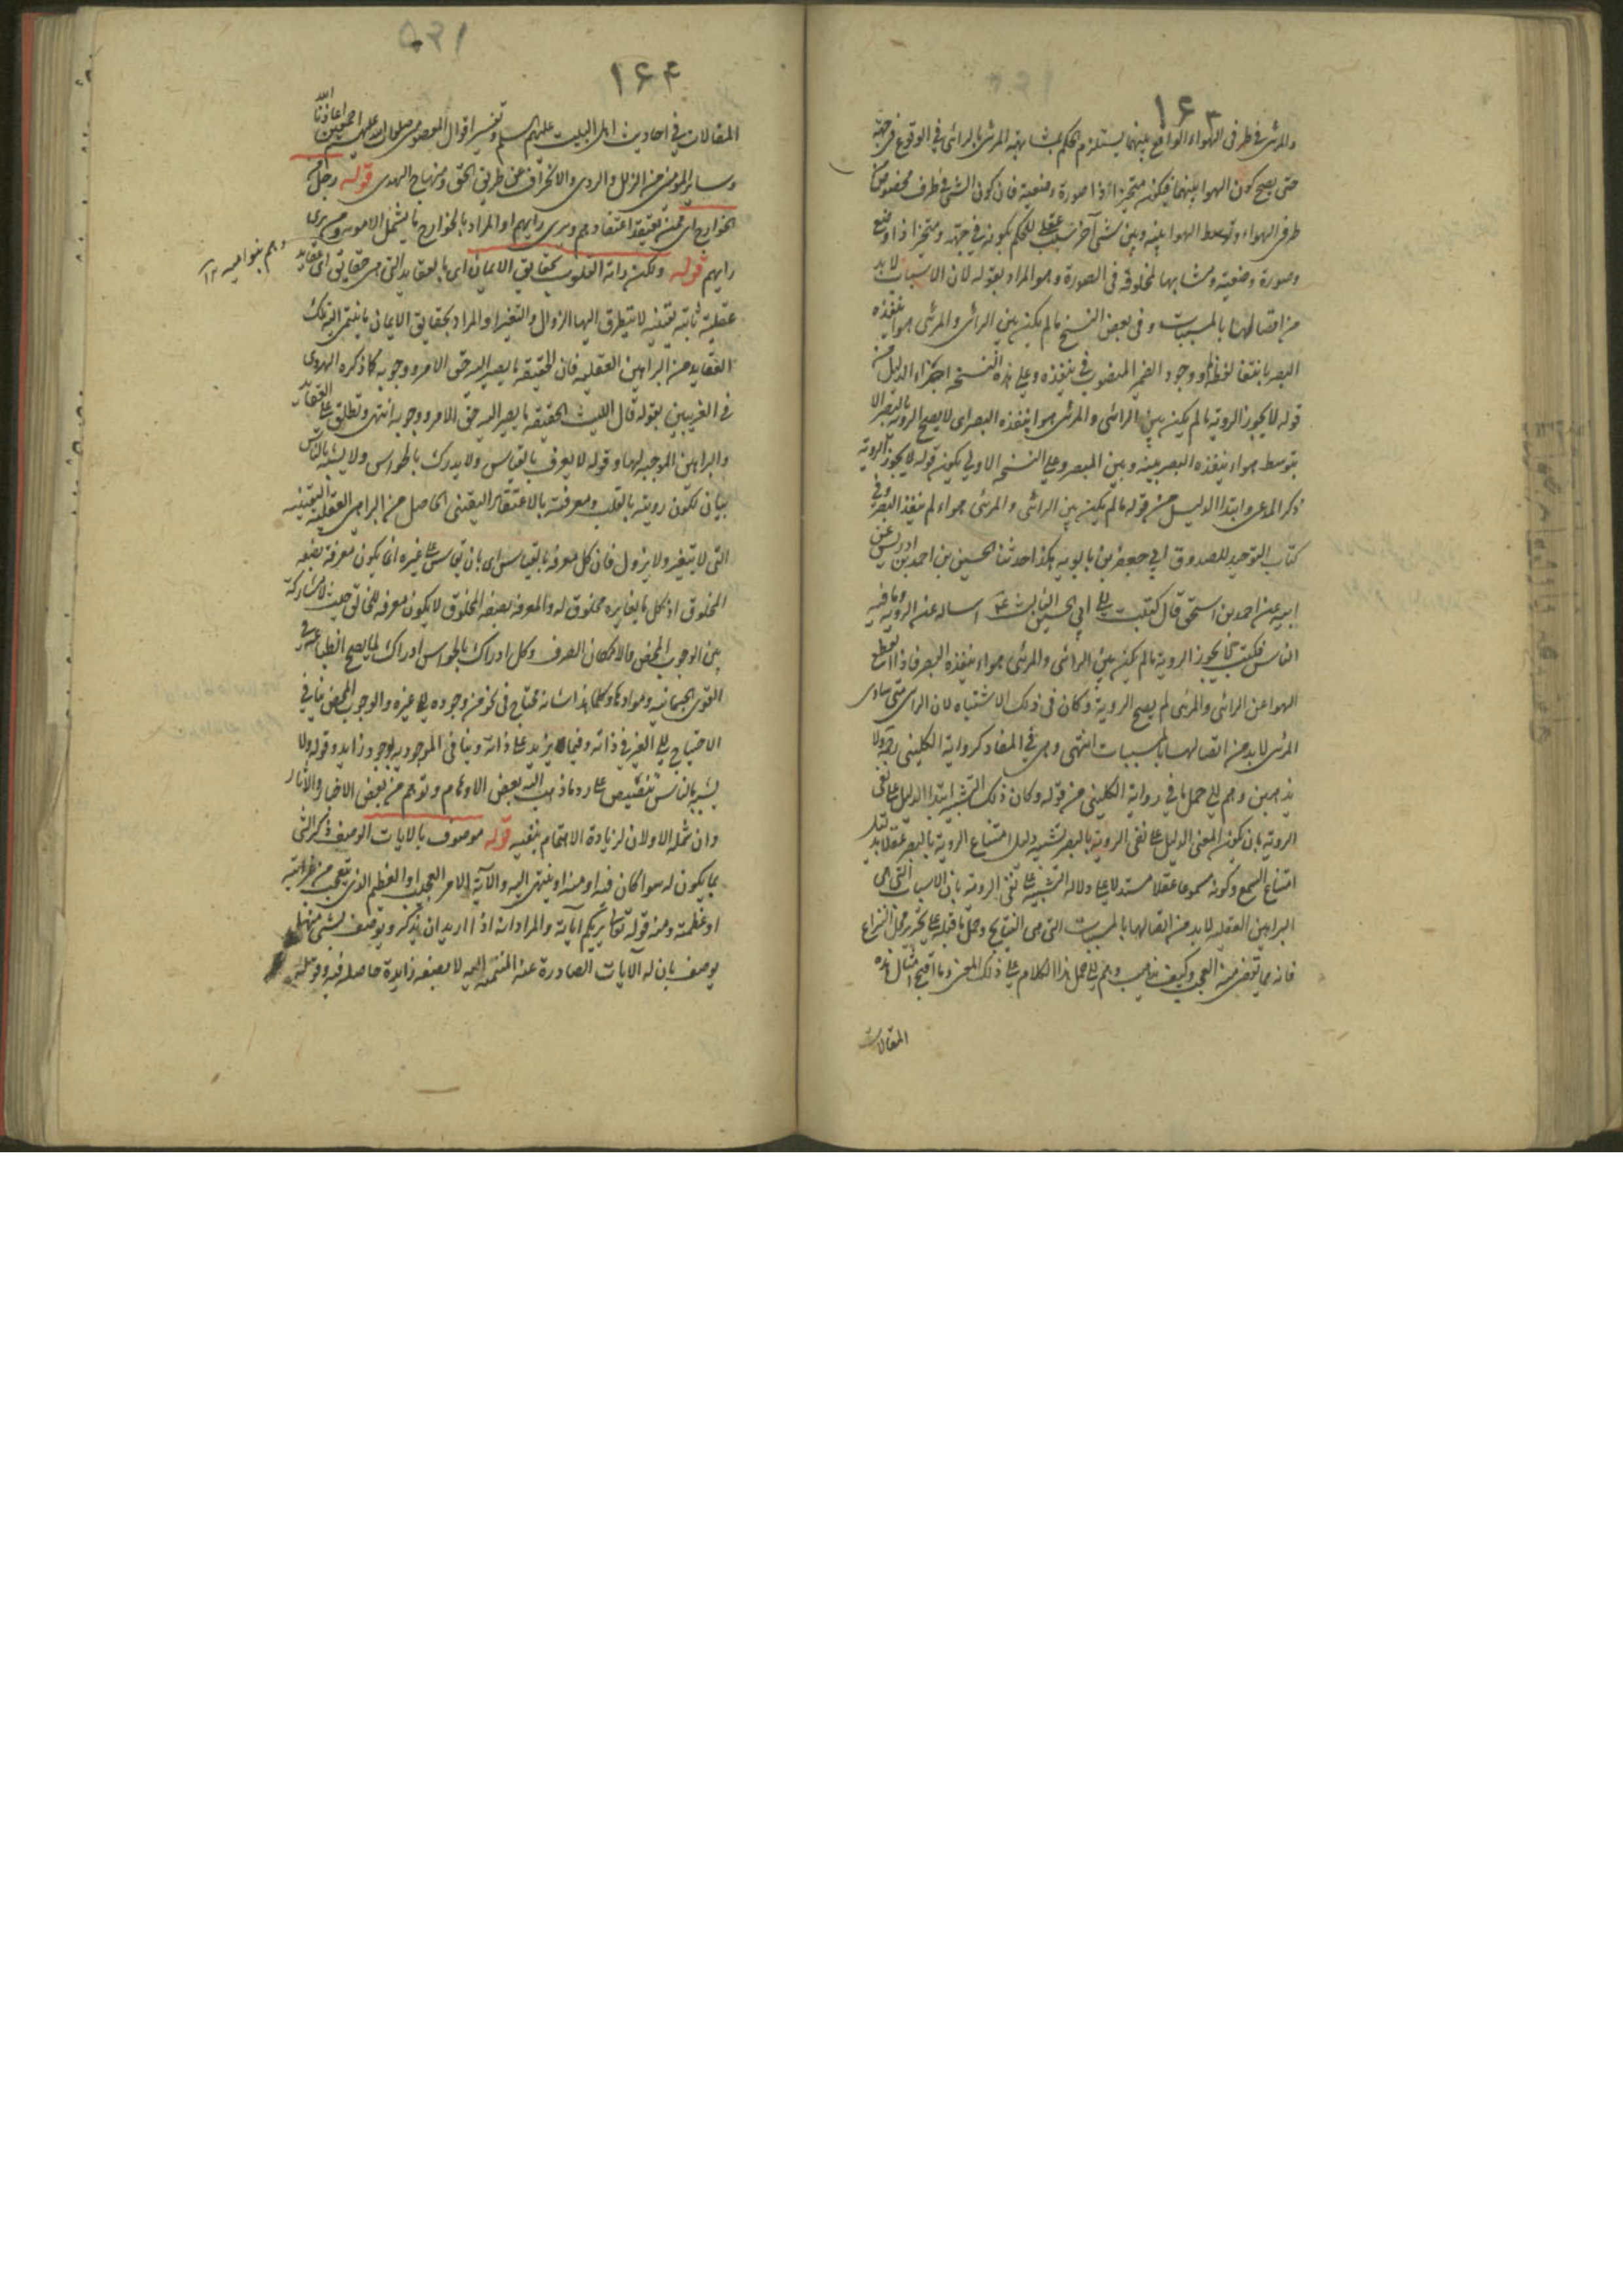 ١٦٣
والمرئى فى طرفى الهواء الواقع بينهما يستلزم الحكم بمشابهة المرئى بالرائى فى الوقوع فى جهة
حتى يصح كون الهواء بينهما فيكون متحيزا ذا صورة وضعية فان كون الشئ فى طرف مخصوص من
طرفى الهواء وتوسط الهواء بينه وبين شئ آخر سبب عقلى للحكم بكونه فى جهة ومتحيزا ذا وضع
وصورة وضعية ومشابها لمخلوقه فى الصورة وهو المراد بقوله لان الاسباب لا بد
من اتصالها بالمسببات وفى بعض النسخ ما لم يكن بين الرائى والمرئى هواء ينفذه
البصر بانتفاء لفظ لم ووجود الضمير المنصوب فى ينفذه وعلى هذه النسخة اجزاء الدليل من
قوله لا يجوز الرؤية ما لم يكن بين الرائى والمرئى هواء ينفذه البصر اى لا يصح الرؤية بالبصر الا
بتوسط هواء ينفذه البصر بينه وبين المبصر وعلى النسخة الاولى يكون قوله لا يجوز الروية
ذكر المدعى وابتداء الدليل من قوله ما لم يكن بين الرائى والمرئى هواء لم ينفذ البصر وفى
كتاب التوحيد للصدوق ابى جعفر بن بابويه هكذا حدثنا الحسين بن احمد بن ادريس عن
ابيه عن احمد بن اسحق قال كتبت الى ابى الحسن الثالث ع اساله عن الروية وما فيه
الناس فكتب لا يجوز الروية ما لم يكن بين الرائى والمرئى هواء ينفذه البصر فاذا انقطع
الهواء عن الرائى والمرئى لم يصح الروية وكان فى ذلك الاشتباه لان الرائى متى ساوى
المرئى لا بد من اتصالها بالمسببات انتهى وهى فى المفاد كرواية الكلينى ره ولا
يذهبن وهم الى حمل ما فى رواية الكلينى من قوله وكان ذلك التشبيه ابتداء الدليل على نفى
الروية بان يكون المعنى الدليل على نفى الروية بالبصر تشبيه دليل امتناع الروية بالبصر عقلا بدليل
امتناع السمع وكونه مسموعا عقلا مستدلا على دلالة التشبيه على نفى الروية بان الاسباب التى هى
البراهين العقلية لا بد من اتصالها بالمسببات التى هى النتايج وحمل ما قبله على تحرير محل النزاع
فانه مما يقضى منه العجب وكيف يذهب وهم الى حمل هذا الكلام على ذلك المعنى وما اقبح امثال هذه
المقالات
١٦٤
المقالات فى احاديث اهل البيت عليهم السلم وتفسير اقوال المعصومين صلوات الله عليهم اجمعين اعاذنا الله
وساير المومنين من الزلل والردى والانحراف عن طريق الحق ومنهاج الهدى قوله رجل من
الخوارج اى ممن يعتقد اعتقادهم ويرى رايهم او المراد بالخوارج ما يشمل الاموية ومن يرى
رايهم قوله ولكن راته القلوب بحقايق الايمان اى بالعقايد التى هى حقايق اى عقايد
وهم بنو امية ١٢
عقلية ثابتة يقينية لا يتطرق اليها الزوال والتغير او المراد بحقايق الايمان ما ينتمى اليه تلك
العقايد من البراهين العقلية فان الحقيقة ما يصير اليه حق الامر ووجوبه كما ذكره الهروى
فى الغريبين بقوله قال الليث الحقيقة ما يصير اليه حق الامر ووجوبه انتهى وتطلق على العقايد
والبراهين الموجبة لها وقوله لا يعرف بالقياس ولا يدرك بالحواس ولا يشبه بالناس
بيان لكون رويته بالقلب ومعرفته بالاعتقاد اليقينى الحاصل من البراهين العقلية اليقينية
التى لا يتغير ولا يزول فان كل معرفة بالقياس اى بان يقاس على غيره اى يكون معرفة بصفة
المخلوق اذ كل ما يغايره مخلوق له والمعرفة بصفة المخلوق لا يكون معرفة للخالق حيث لا مشاركة
بين الوجوب المحض والامكان الصرف وكل ادراك بالحواس ادراك لما يصح انطباعه فى
القوى الجسمانية وموادها وكلما هذا شانه محتاج فى نحو من وجوده الى غيره والوجوب المحض ينافى
الاحتياج الى الغير فى ذاته وفيما يزيد على ذاته وينافى الموجودية بوجود زايد وقوله ولا
يشبه بالناس تنصيص على رد ما ذهب اليه بعض الاوهام وتوهم من بعض الاخبار والاثار
وان شمله الاولان لزيادة الاهتمام بنفيه قوله موصوف بالايات الوصف ذكر الشئ
بما يكون له سواء كان فيه او منه او ينتهى اليه والآية الامر العجيب او العظيم الذى يتعجب من غرابته
او عظمته ومنه قوله تعالى يريكم آياته والمراد انه اذا اريد ان يذكر ويوصف بشئ منها
يوصف بان له الايات الصادرة عنه المنتمية اليه لا بصفة زايدة حاصلة فيه وقوله